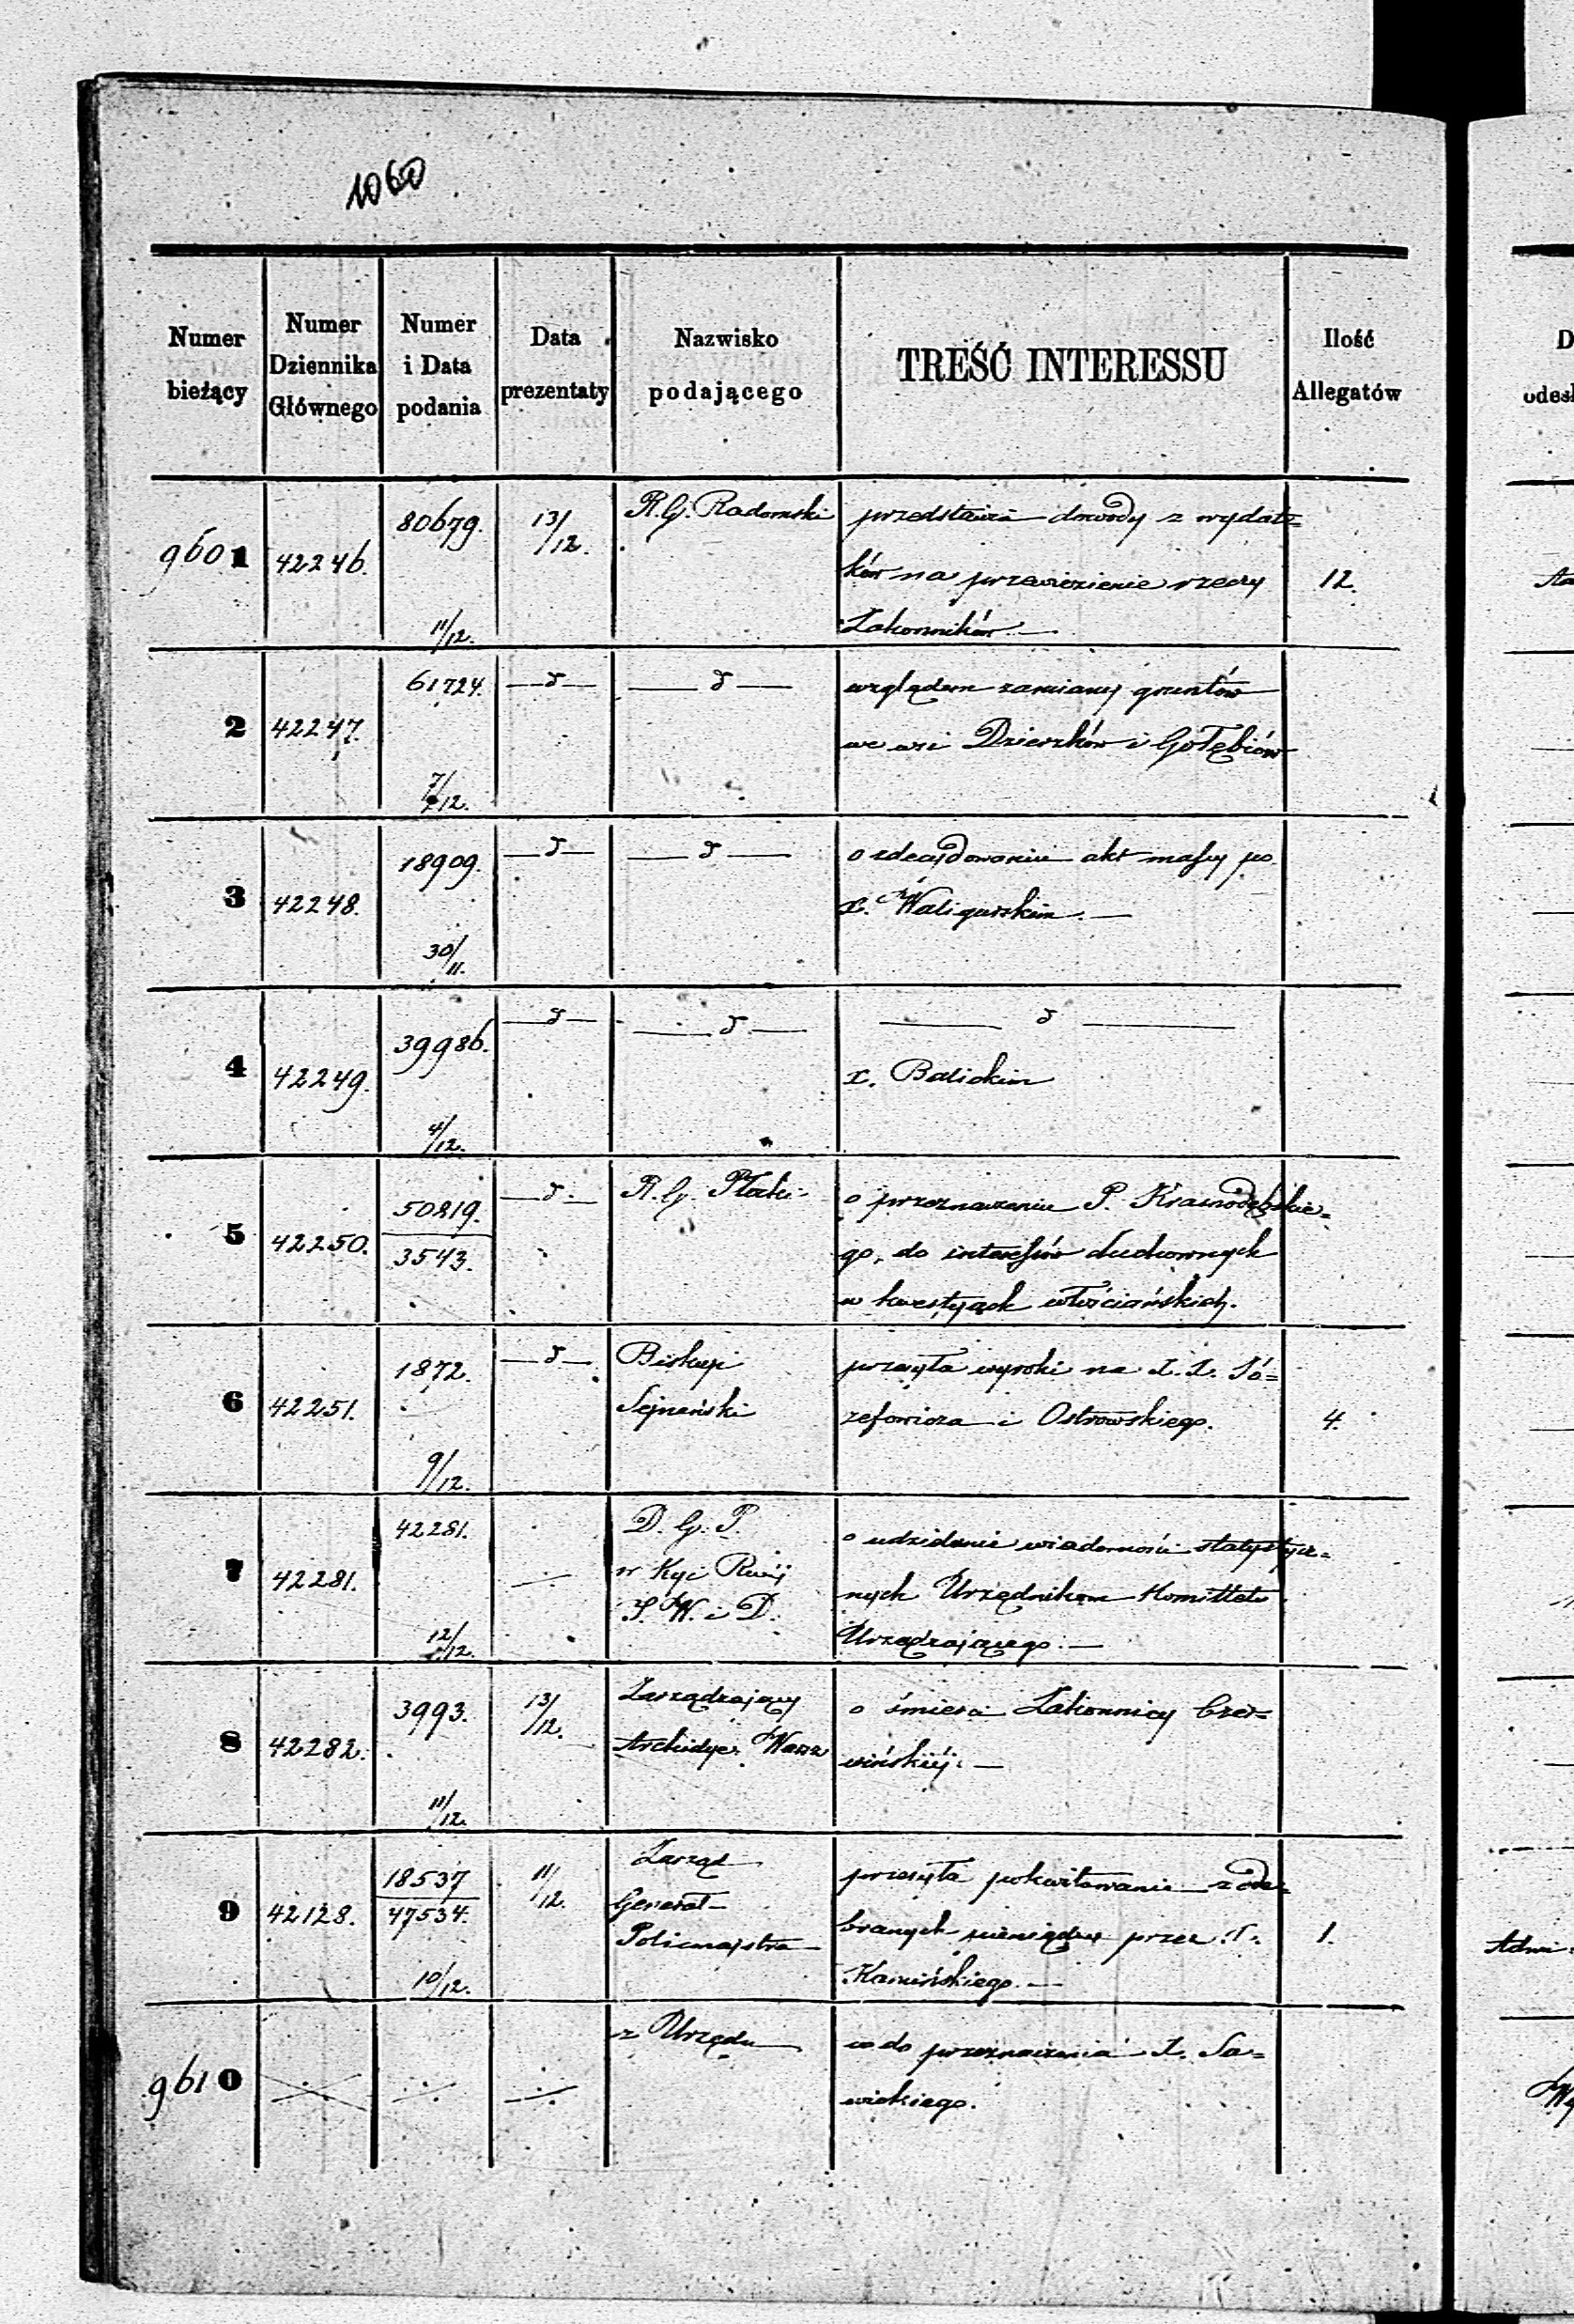 1060
Numer bieżący
Numer Dziennika Głównego
Numer i Data podania
Data prezentaty
Nazwisko podającego
TREŚĆ INTERESSU
Ilość Allegatów
9601
42246.
80679.
11/12.
13/12.
R. G. Radomski
przedstawia dowody z wydat=
ków na przewiezienie rzeczy
Zakonników. —
12.
2
42247.
61724.
7/12.
— d —
— d —
względem zamiany gruntów
we wsi Dzierzków i Gołębiów
3
42248.
18909.
30/11.
— d —
— d —
o zdecydowanie akt massy po
x. Waligurskim. —
4
42249.
39986.
4/12.
— d —
— d —
— d —
x. Balickim
5
42250.
50819.
3543.
— d —
R. G. Płocki
o przeznaczeniu P. Krasnodębskie=
go, do interessów duchownych
w kwestyach włościańskich.
6
42251.
1872.
9/12.
— d —
Biskup
Sejneński
przesyła wyroki na X. X. Jó=
zefowicza i Ostrowskiego.
4.
7
42281.
42281.
12/12.
D. G. P.
w Kyi Rwéj
S. W. i D.
o udzielanie wiadomości statystycz=
nych Urzędnikom Komittetu
Urządzającego. —
8
42282.
3993.
11/12.
13/12.
Zarządzający
Archidyec. Warsz
o śmierci Zakonnicy Czer=
wińskiéj. —
9
42128.
18537
47534.
10/12.
11/12.
Zarząd
Generał
Policmajstra
przesyła pokwitowanie z ode=
branych pieniędzy przez
Kamińskiego. —
1.
9610
z Urzędu
co do przeznaczenia X. Sa=
wickiego.